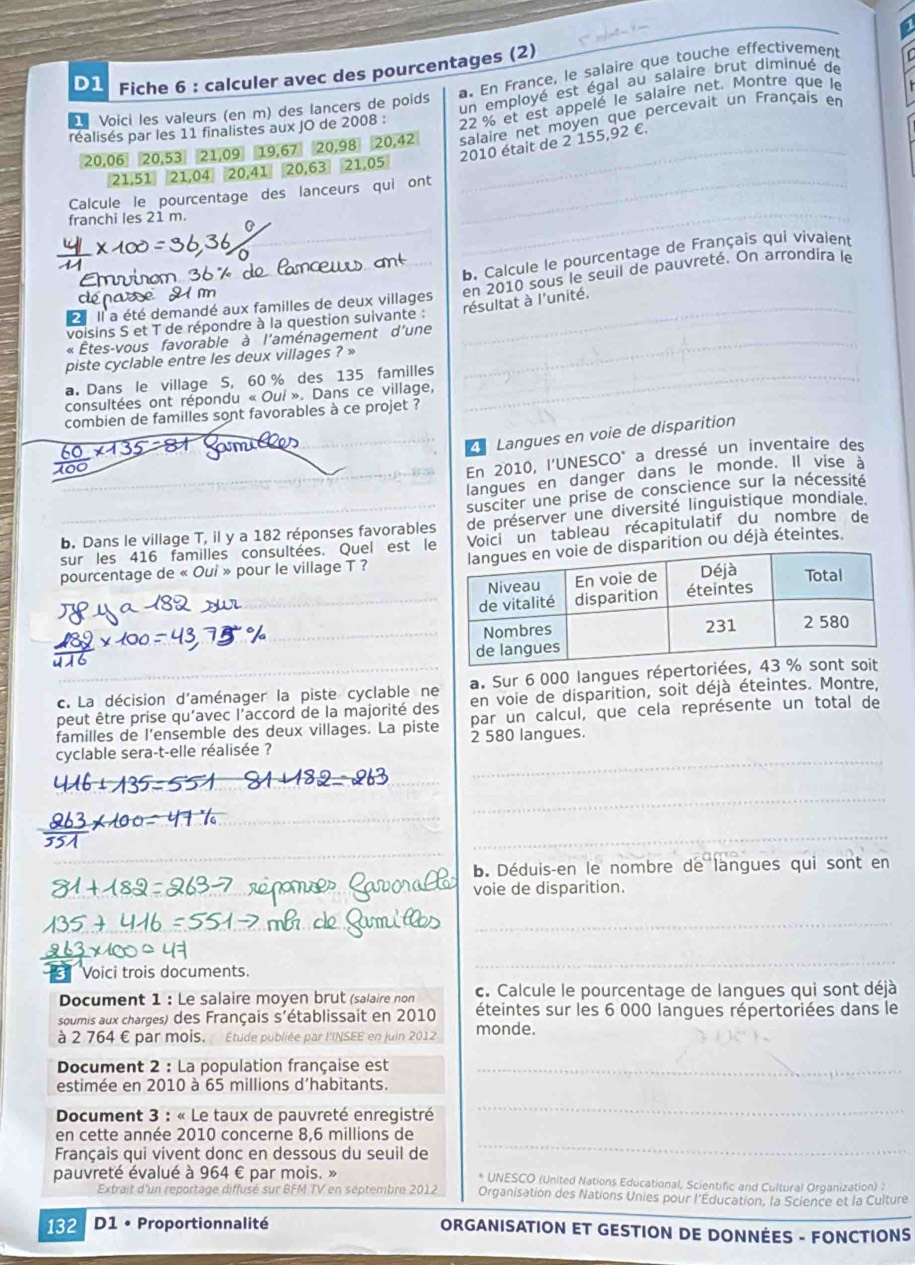 D1 Fiche 6 : calculer avec des pourcentages (2)
1 Voici les valeurs (en m) des lancers de poids
réalisés par les 11 finalistes aux JO de 2008 :
20,06 20,53 21,09 19,67 20,98 20,42
21,51 21,04 20,41 20,63 21,05
Calcule le pourcentage des lanceurs qui ont
franchi les 21 m.
4/11 × 100 = 36,36 %
Environ 36% de lanceurs ont
dépassé 21 m
2 Il a été demandé aux familles de deux villages
voisins S et T de répondre à la question suivante :
« Êtes-vous favorable à l'aménagement d'une
piste cyclable entre les deux villages ? »
a. Dans le village S, 60 % des 135 familles
consultées ont répondu « Oui ». Dans ce village,
combien de familles sont favorables à ce projet ?
60/100 × 135 = 81 familles
b. Dans le village T, il y a 182 réponses favorables
sur les 416 familles consultées. Quel est le
pourcentage de « Oui » pour le village T ?
Il y a 182 sur
182/416 × 100 = 43,75 %
c. La décision d'aménager la piste cyclable ne
peut être prise qu'avec l'accord de la majorité des
familles de l'ensemble des deux villages. La piste
cyclable sera-t-elle réalisée ?
416 + 135 = 551 81 + 182 = 263
263/551 × 100 = 47 %
81 + 182 = 263 → réponses favorables
135 + 416 = 551 → nbr de familles
263/551 × 100 = 47
3 Voici trois documents.
Document 1 : Le salaire moyen brut (salaire non
soumis aux charges) des Français s'établissait en 2010
à 2 764 € par mois. Étude publiée par l'INSEE en juin 2012
Document 2 : La population française est
estimée en 2010 à 65 millions d'habitants.
Document 3 : « Le taux de pauvreté enregistré
en cette année 2010 concerne 8,6 millions de
Français qui vivent donc en dessous du seuil de
pauvreté évalué à 964 € par mois. »
Extrait d'un reportage diffusé sur BFM TV en septembre 2012
a. En France, le salaire que touche effectivement
un employé est égal au salaire brut diminué de
22 % et est appelé le salaire net. Montre que le
salaire net moyen que percevait un Français en
2010 était de 2 155,92 €.
b. Calcule le pourcentage de Français qui vivaient
en 2010 sous le seuil de pauvreté. On arrondira le
résultat à l'unité.
4 Langues en voie de disparition
En 2010, l'UNESCO* a dressé un inventaire des
langues en danger dans le monde. Il vise à
susciter une prise de conscience sur la nécessité
de préserver une diversité linguistique mondiale.
Voici un tableau récapitulatif du nombre de
langues en voie de disparition ou déjà éteintes.
Niveau de vitalité En voie de disparition Déjà éteintes Total
Nombres de langues 231 2 580
a. Sur 6 000 langues répertoriées, 43 % sont soit
en voie de disparition, soit déjà éteintes. Montre,
par un calcul, que cela représente un total de
2 580 langues.
b. Déduis-en le nombre de langues qui sont en
voie de disparition.
c. Calcule le pourcentage de langues qui sont déjà
éteintes sur les 6 000 langues répertoriées dans le
monde.
* UNESCO (United Nations Educational, Scientific and Cultural Organization) :
Organisation des Nations Unies pour l'Éducation, la Science et la Culture
132 D1 • Proportionnalité
ORGANISATION ET GESTION DE DONNÉES - FONCTIONS